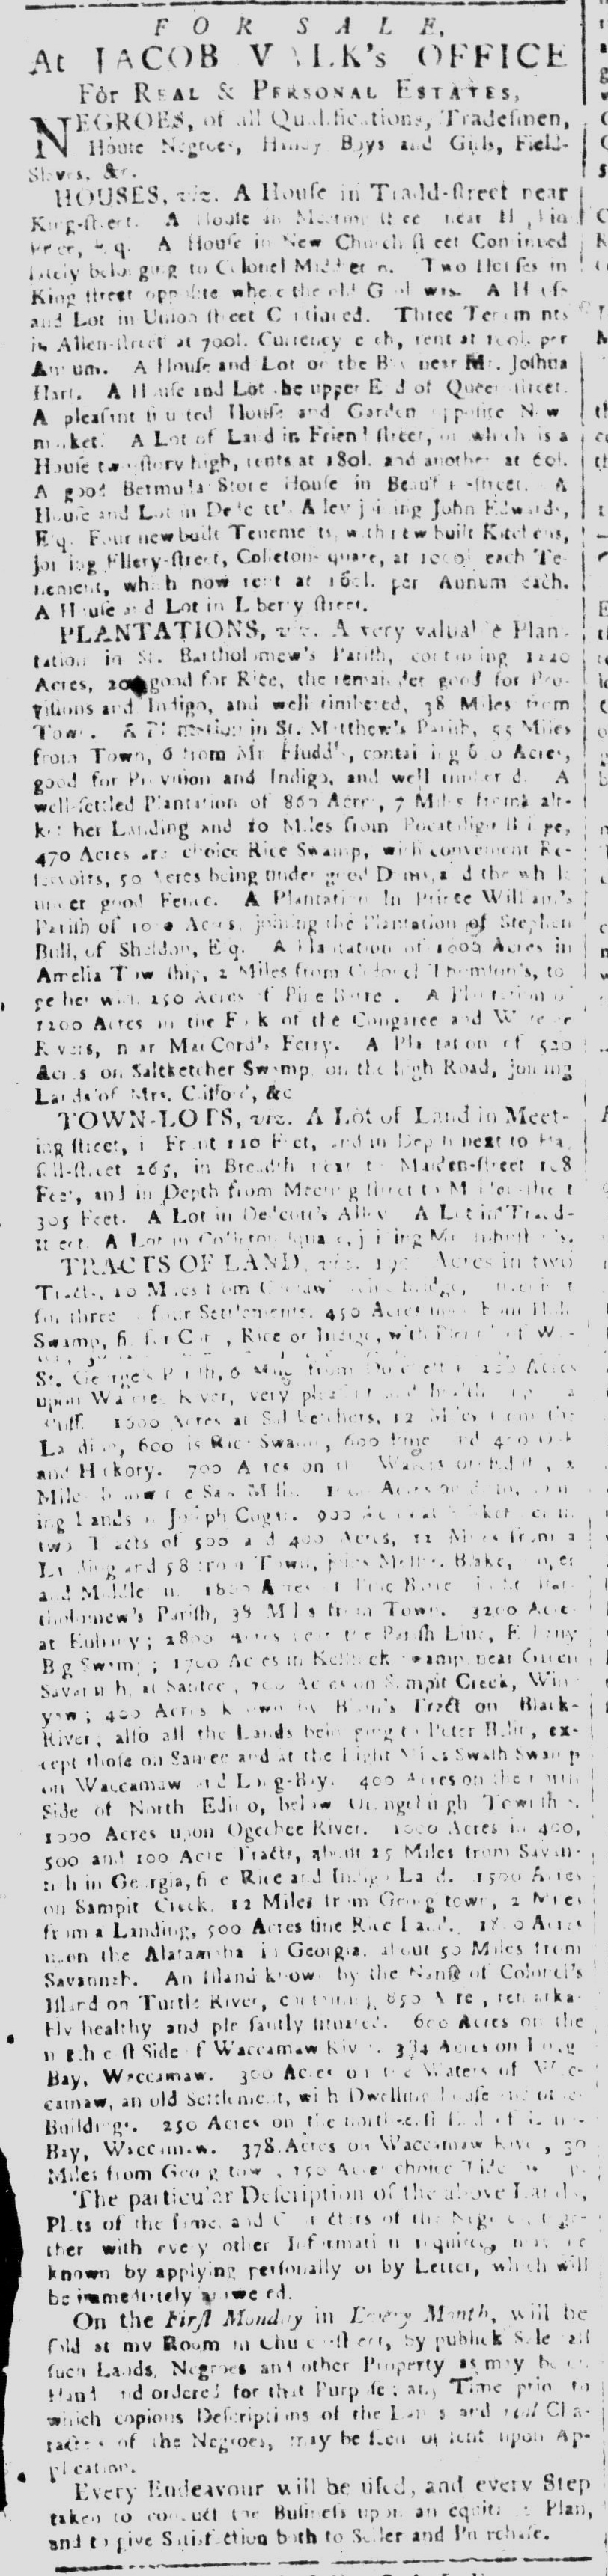 FOR SALE,
At JACOB VALK's OFFICE
For REAL & PERSONAL ESTATES,
NEGROES, of all Qualifications, Tradesmen,
House Negroes, Handy Boys and Girls, Field-
Slaves, &c.
HOUSES, viz. A House in Tradd-street near
King-street. A House in Meeting street near
Price, Esq. A House in New Church street Continued
lately belonging to Colonel Middleton. Two Houses in
King street opposite where the old Gaol was. A House
and Lot in Union street Continued. Three Tenements
in Allen-street at 700l. Currency each, rent at 100l. per
Annum. A House and Lot on the Bay near Mr. Joshua
Hart. A House and Lot the upper End of Queen street.
A pleasant situated House and Garden opposite New
market. A Lot of Land in Friend street, on which is a
House two story high, rents at 180l. and another at 60l.
A good Bermuda Stone House in Beaufain-street. A
House and Lot in Alley joining John Edwards,
Esq. Four new built Tenements, with new built Kitchens,
joining Ellery-street, Colleton-square, at each Te-
nement, which now rent at 160l. per Annum each.
A House and Lot in Liberty street.
PLANTATIONS, viz. A very valuable Plan-
tation in St. Bartholomew's Parish, containing 1220
Acres, 200 good for Rice, the remainder good for Pro-
visions and Indigo, and well timbered, 38 Miles from
Town. A Plantation in St. Matthew's Parish, 55 Miles
from Town, 6 from Mr. containing Acres,
good for Provision and Indigo, and well timbered. A
well-settled Plantation of 860 Acres, 7 Miles from Salt-
ketcher Landing and 10 Miles from Pocotaligo Bridge,
470 Acres are choice Rice Swamp, with convenient Re-
servoirs, 50 Acres being under good Dams, and the whole
under good Fence. A Plantation In Prince William's
Parish of Acres, joining the Plantation of Stephen
Bull, of Sheldon, Esq. A Plantation of 1000 Acres in
Amelia Township, 2 Miles from Colonel Thomson's, to-
gether with 250 Acres of Pine Barren. A Plantation of
1200 Acres in the Fork of the Congaree and Wateree
Rivers, near MacCord's Ferry. A Plantation of 520
Acres on Saltketcher Swamp, on the high Road, joining
Lands of Mrs. Clifford, &c.
TOWN-LOTS, viz. A Lot of Land in Meet-
ing street, in Front 110 Feet, and in Depth next to Ha-
sell-street 265, in Breadth near to Maiden-street 108
Feet, and in Depth from Meeting street to Maiden-street
305 Feet. A Lot in Alley. A Lot in Tradd-
street. A Lot in Colleton square, joining Mr.
TRACTS OF LAND, viz. Acres in two
Tracts, 10 Miles from
for three or four Settlements. 450 Acres
Swamp, fit for Corn, Rice or Indigo, with
St. George's Parish, 6 Miles from 250 Acres
upon Wateree River, very pleasant and
Bluff. 1600 Acres at Saltketchers, 12 Miles from the
Landing, 600 is Rice Swamp, 600 Pine and 400 Oak
and Hickory. 700 Acres on the Waters of Edisto, 2
Miles below the Saw Mills. Acres join-
ing Lands of Joseph 900 Acres at Saltketcher in
two Tracts of 500 and 400 Acres, 12 Miles from a
Landing and 58 from Town, joins Messrs. Blake,
and Middleton. 1800 Acres of Pine Barren in St. Bar-
tholomew's Parish, 38 Miles from Town. 3200 Acres
at Euhany; 2800 Acres near the Parish Line, Euhany
Big Swamp; 1700 Acres in swamp near Green
Savannah, at Santee, 700 Acres on Sampit Creek, Win-
yaw; 400 Acres known by Tract on Black-
River; also all the Lands belonging to Peter Butler, ex-
cept those on Santee and at the Eight Miles Swash Swamp
on Waccamaw and Long-Bay. 400 Acres on the north
Side of North Edisto, below Orangeburgh Township.
1000 Acres upon Ogechee River. 1000 Acres in 400,
500 and 100 Acre Tracts, about 25 Miles from Savan-
nah in Georgia, fine Rice and Indigo Land. 1500 Acres
on Sampit Creek, 12 Miles from Georgetown, 2 Miles
from a Landing, 500 Acres fine Rice Land. Acres
upon the Alatamaha in Georgia, about 50 Miles from
Savannah. An Island known by the Name of Colonel's
Island on Turtle River, containing 850 Acres, remarka-
bly healthy and pleasantly situated. 600 Acres on the
north east Side of Waccamaw River. 334 Acres on Long
Bay, Waccamaw. 300 Acres on the Waters of Wac-
camaw, an old Settlement, with Dwelling House and other
Buildings. 250 Acres on the north-east End of Long-
Bay, Waccamaw. 378 Acres on Waccamaw River, 30
Miles from Georgetown, 150 Acres choice Tide
The particular Description of the above Lands,
Plats of the same, and Characters of the Negroes, toge-
ther with every other Information required, may be
known by applying personally or by Letter, which will
be immediately answered.
On the First Monday in Every Month, will be
sold at my Room in Church-street, by publick Sale all
such Lands, Negroes and other Property as may be on
Hand and ordered for that Purpose; at any Time prior to
which copious Descriptions of the Lands and real Cha-
racters of the Negroes, may be seen or sent upon Ap-
plication.
Every Endeavour will be used, and every Step
taken to conduct the Business upon an equitable Plan,
and to give Satisfaction both to Seller and Purchaser.